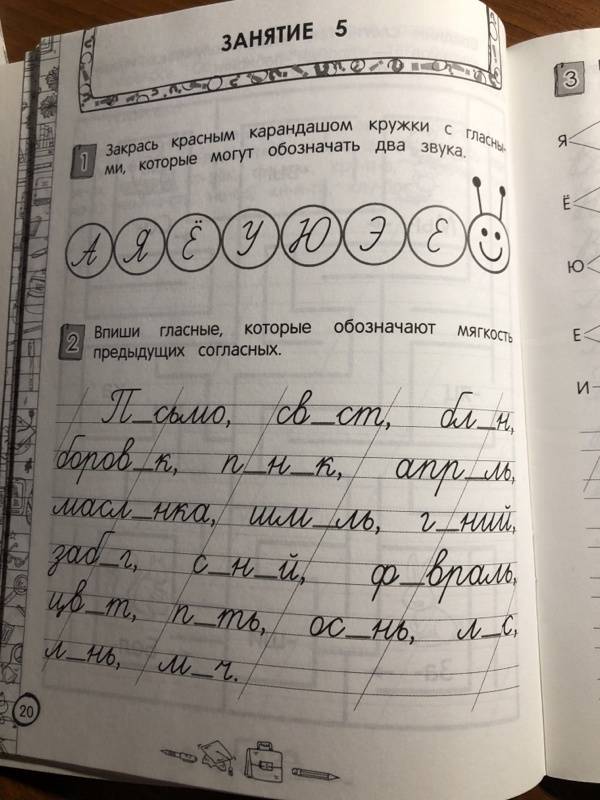 ЗАНЯТИЕ 5
1 Закрась красным карандашом кружки с гласны-
ми, которые могут обозначать два звука.
А Я Ё У Ю Э Е
2 Впиши гласные, которые обозначают мягкость
предыдущих согласных.
П_сьмо, св_ст, бл_н,
боров_к, п_н_к, апр_ль,
масл_нка, шм_ль, г_ний,
заб_г, с_н_й, ф_враль,
цв_т, п_ть, ос_нь, л_с,
л_нь, м_ч.
20
3
Я
Ё
Ю
Е
И